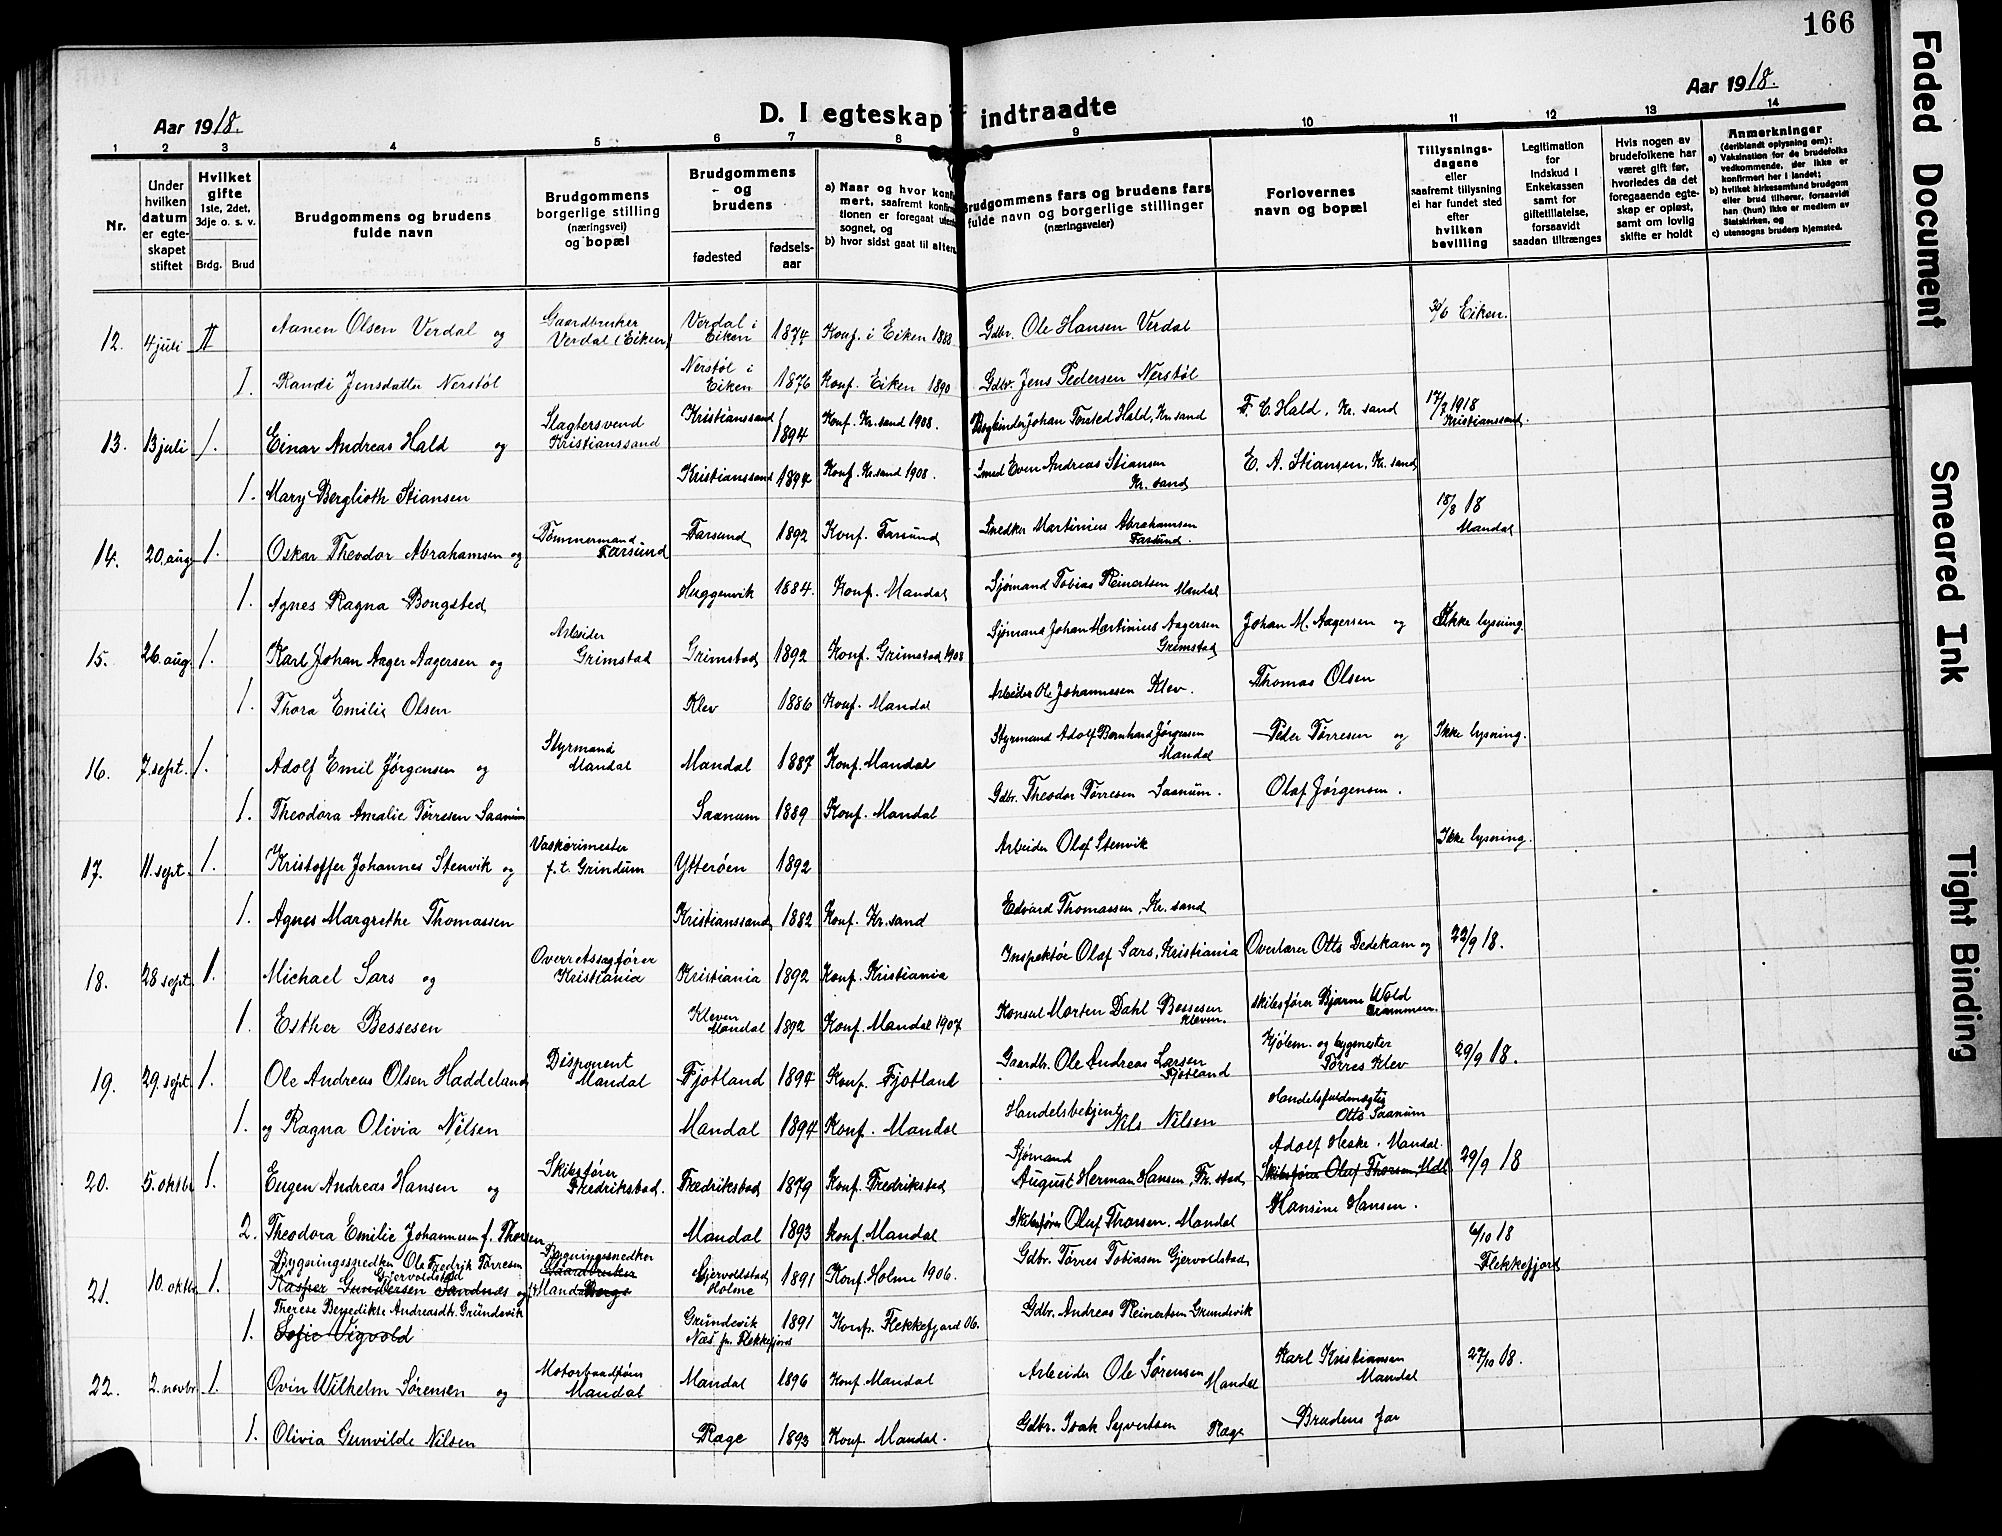 166
Aar 1918.
Aar 1918.
D. I egteskap indtraadte
1 2 3 4 5 6 7 8 9 10 11 12 13 14
Nr.
Under hvilken datum er egteskapet stiftet
Hvilket gifte
1ste, 2det, 3dje o. s. v.
Brdg. Brud
Brudgommens og brudens fulde navn
Brudgommens borgerlige stilling (næringsvei) og bopæl
Brudgommens og brudens
fødested
fødsels-aar
a) Naar og hvor konfirmert, saafremt konfirmationen er foregaat utenfor sognet, og
b) hvor sidst gaat til alters
Brudgommens fars og brudens fars fulde navn og borgerlige stillinger (næringsveier)
Forlovernes navn og bopæl
Tillysnings-dagene eller saafremt tillysning ei har fundet sted efter hvilken bevilling
Legitimation for indskud i Enkekassen samt for giftetillatelse, forsaavidt saadan tiltrænges
Hvis nogen av brudefolkene har været gift før, hvorledes da det foregaaende egteskap er opløst, samt om lovlig skifte er holdt
Anmerkninger
(deriblandt oplysning om):
a) Vaksination for de brudefolks vedkommende, der ikke er konfirmert her i landet;
b) hvilket kirkesamfund brudgom eller brud tilhører, forsaavidt han (hun) ikke er medlem av Statskirken, og
c) utensogns bruders hjemsted.
12. 4 juli II Aanen Olsen Verdal og Gaardbruker Verdal (Eiken) Verdal i Eiken 1874 Konf. i Eiken 1888 Gdbr. Ole Hansen Verdal 30/6 Eiken.
I. Randi Jensdatter Nerstøl Nerstøl i Eiken 1876 Konf. Eiken 1890 Gdbr. Jens Pedersen Nerstøl
13. 13 juli 1. Einar Andreas Hald og Slagtersvend Kristianssand Kristianssand 1894 Konf. Kr.sand 1908. Bogbinder Johan Forsted Hald, Kr.sand F. C. Hald, Kr. sand 17/7 1918 Kristianssand.
1. Mary Bergliøth Stiansen Kristianssand 1894 Konf. Kr.sand 1908. Smed Even Andreas Stiansen Kr. sand E. A. Stiansen, Kr. sand
14. 20. aug. 1. Oskar Theodor Abrahamsen og Tømmermand Farsund Farsund 1892 Konf. Farsund Snedker Martinius Abrahamsen Farsund. 18/8 18 Mandal
1. Agnes Ragna Bongsted Huggenvik 1884. Konf. Mandal Sjømand Tobias Reinertsen Mandal
15. 26. aug. 1. Karl Johan Aager Aagersen og Arbeider Grimstad Grimstad 1892 Konf. Grimstad 1908 Sjømand Johan Martinius Aagersen Grimstad Johan M. Aagersen og Ikke lysning
1. Thora Emilie Olsen Klev 1886 Konf. Mandal Arbeider Ole Johannesen Klev. Thomas Olsen
16. 7. sept. 1. Adolf Emil Jørgensen og Styrmand Mandal Mandal 1887 Konf. Mandal Styrmand Adolf Bernhard Jørgensen Mandal Peder Tørresen og Ikke lysning.
1. Theodora Amalie Tørresen Saanum Saanum 1889 Konf. Mandal Gdbr. Theodor Tørresen Saanum. Olaf Jørgensen.
17. 11. sept. 1. Kristoffer Johannes Stenvik og Vaskerimester f. t. Grindum Ytterøen 1892 Arbeider Olaf Stenvik Ikke lysning.
1. Agnes Margrethe Thomassen Kristianssand 1882 Konf. Kr.sand Edvard Thomassen, Kr. sand
18. 28 sept. 1. Michael Sars og Overretssagfører Kristiania Kristiania 1892 Konf. Kristiania Inspektør Olaf Sars, Kristiania Overlærer Otto Dedekam og 22/9 18.
1. Esther Bessesen Kleven Mandal 1892 Konf. Mandal 1907 Konsul Morten Dahl Bessesen Kleven. Skibsfører Bjarne Wold Drammen.
19. 29. sept. 1. Ole Andreas Olsen Haddeland Disponent Mandal Fjotland 1894 Konf. Fjotland Gaardbr. Ole Andreas Larsen Fjotland Kjølem. og bygmester Tørres Klev 29/9 18.
1. og Ragna Olivia Nilsen Mandal 1894 Konf. Mandal Handelsbetjent Nils Nilsen Handelsfuldmægtig Otto Saanum
20. 5. oktbr 1. Eugen Andreas Hansen og Skibsfører Fredriksstad. Fredriksstad 1879 Konf. Fredrikstad Sjømand August Herman Hansen, Fr. stad Adolf Heske. Mandal. Skibsfører Oluf Thorsen, Mdl 29/9 18
2. Theodora Emilie Johannesen f. Thorsen Mandal 1893 Konf. Mandal Skibsfører Oluf Thorsen. Mandal Hansine Hansen.
21. 10. oktbr 1. Bygningssnedker Ole Fredrik Tørresen Gjervoldstad Kasper Gundersen Sandnæs og Bygningssnedker Gaardbruker Mandal Berge Gjervoldstad Holme 1891 Konf. Holme 1906. Gdbr. Tørres Tobiassen Gjervoldstad 6/10 18 Flekkefjord
1. Therese Benedikte Andreasdt. Grundevik Sofie Vigvold Grundevik Næs pr. Flekkefjord 1891 Konf. Flekkefjord 06. Gdbr. Andreas Reinertsen Grundevik
22. 2. novbr 1. Ovin Wilhelm Sørensen og Motorbaadfører Mandal Mandal 1896 Konf. Mandal Arbeider Ole Sørensen Mandal Karl Kristiansen Mandal 27/10 18.
1. Olivia Gunvilde Nilsen Ræge 1893 Konf. Mandal. Gdbr. Isak Syvertsen Ræge Brudens far
Faded Document
Smeared Ink
Tight Binding